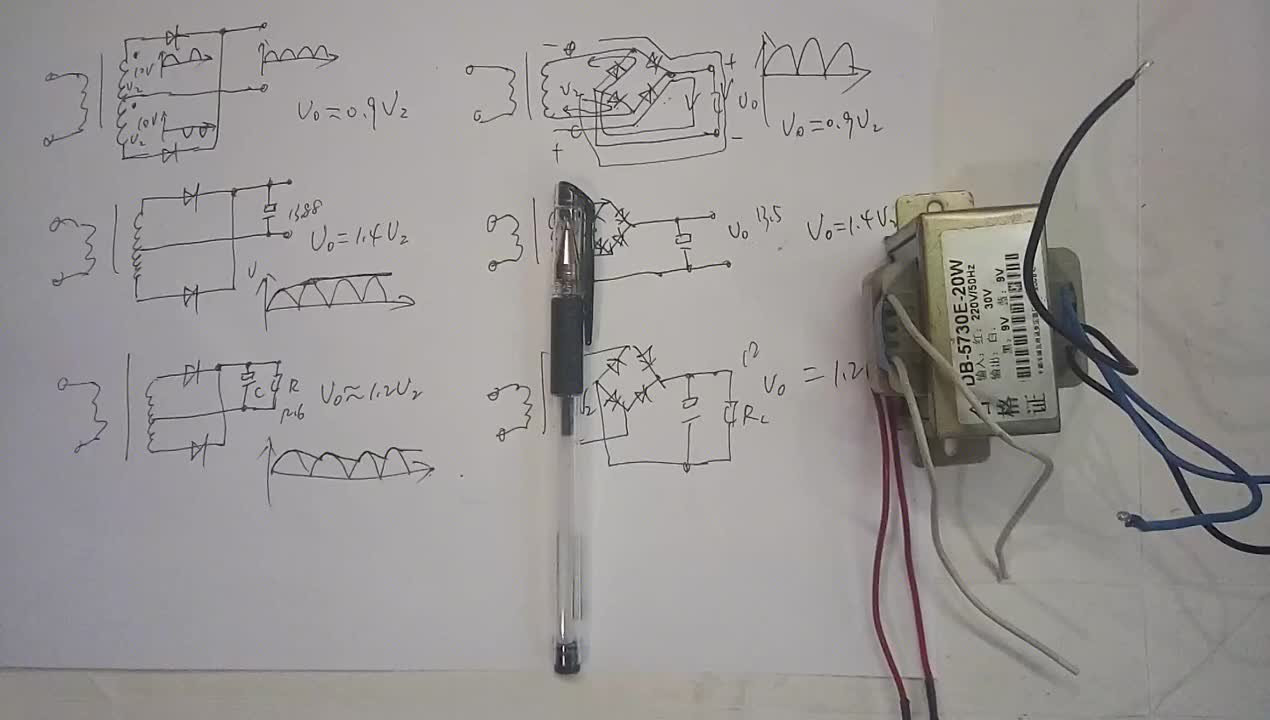 10V
V₂
10V
V₂
U₀=0.9V₂
− 
V₂
+
+
U₀
−
U₀=0.9V₂
13.88
U₀=1.4V₂
U
U₀ 13.5
U₀=1.4V₂
C
R
12.6
U₀≈1.2V₂
12
U₀ = 1.2
R_L
DB-5730E-20W
输入: 红: 220V/50Hz
输出: 白: 30V
黑: 9V 蓝: 9V
格
证